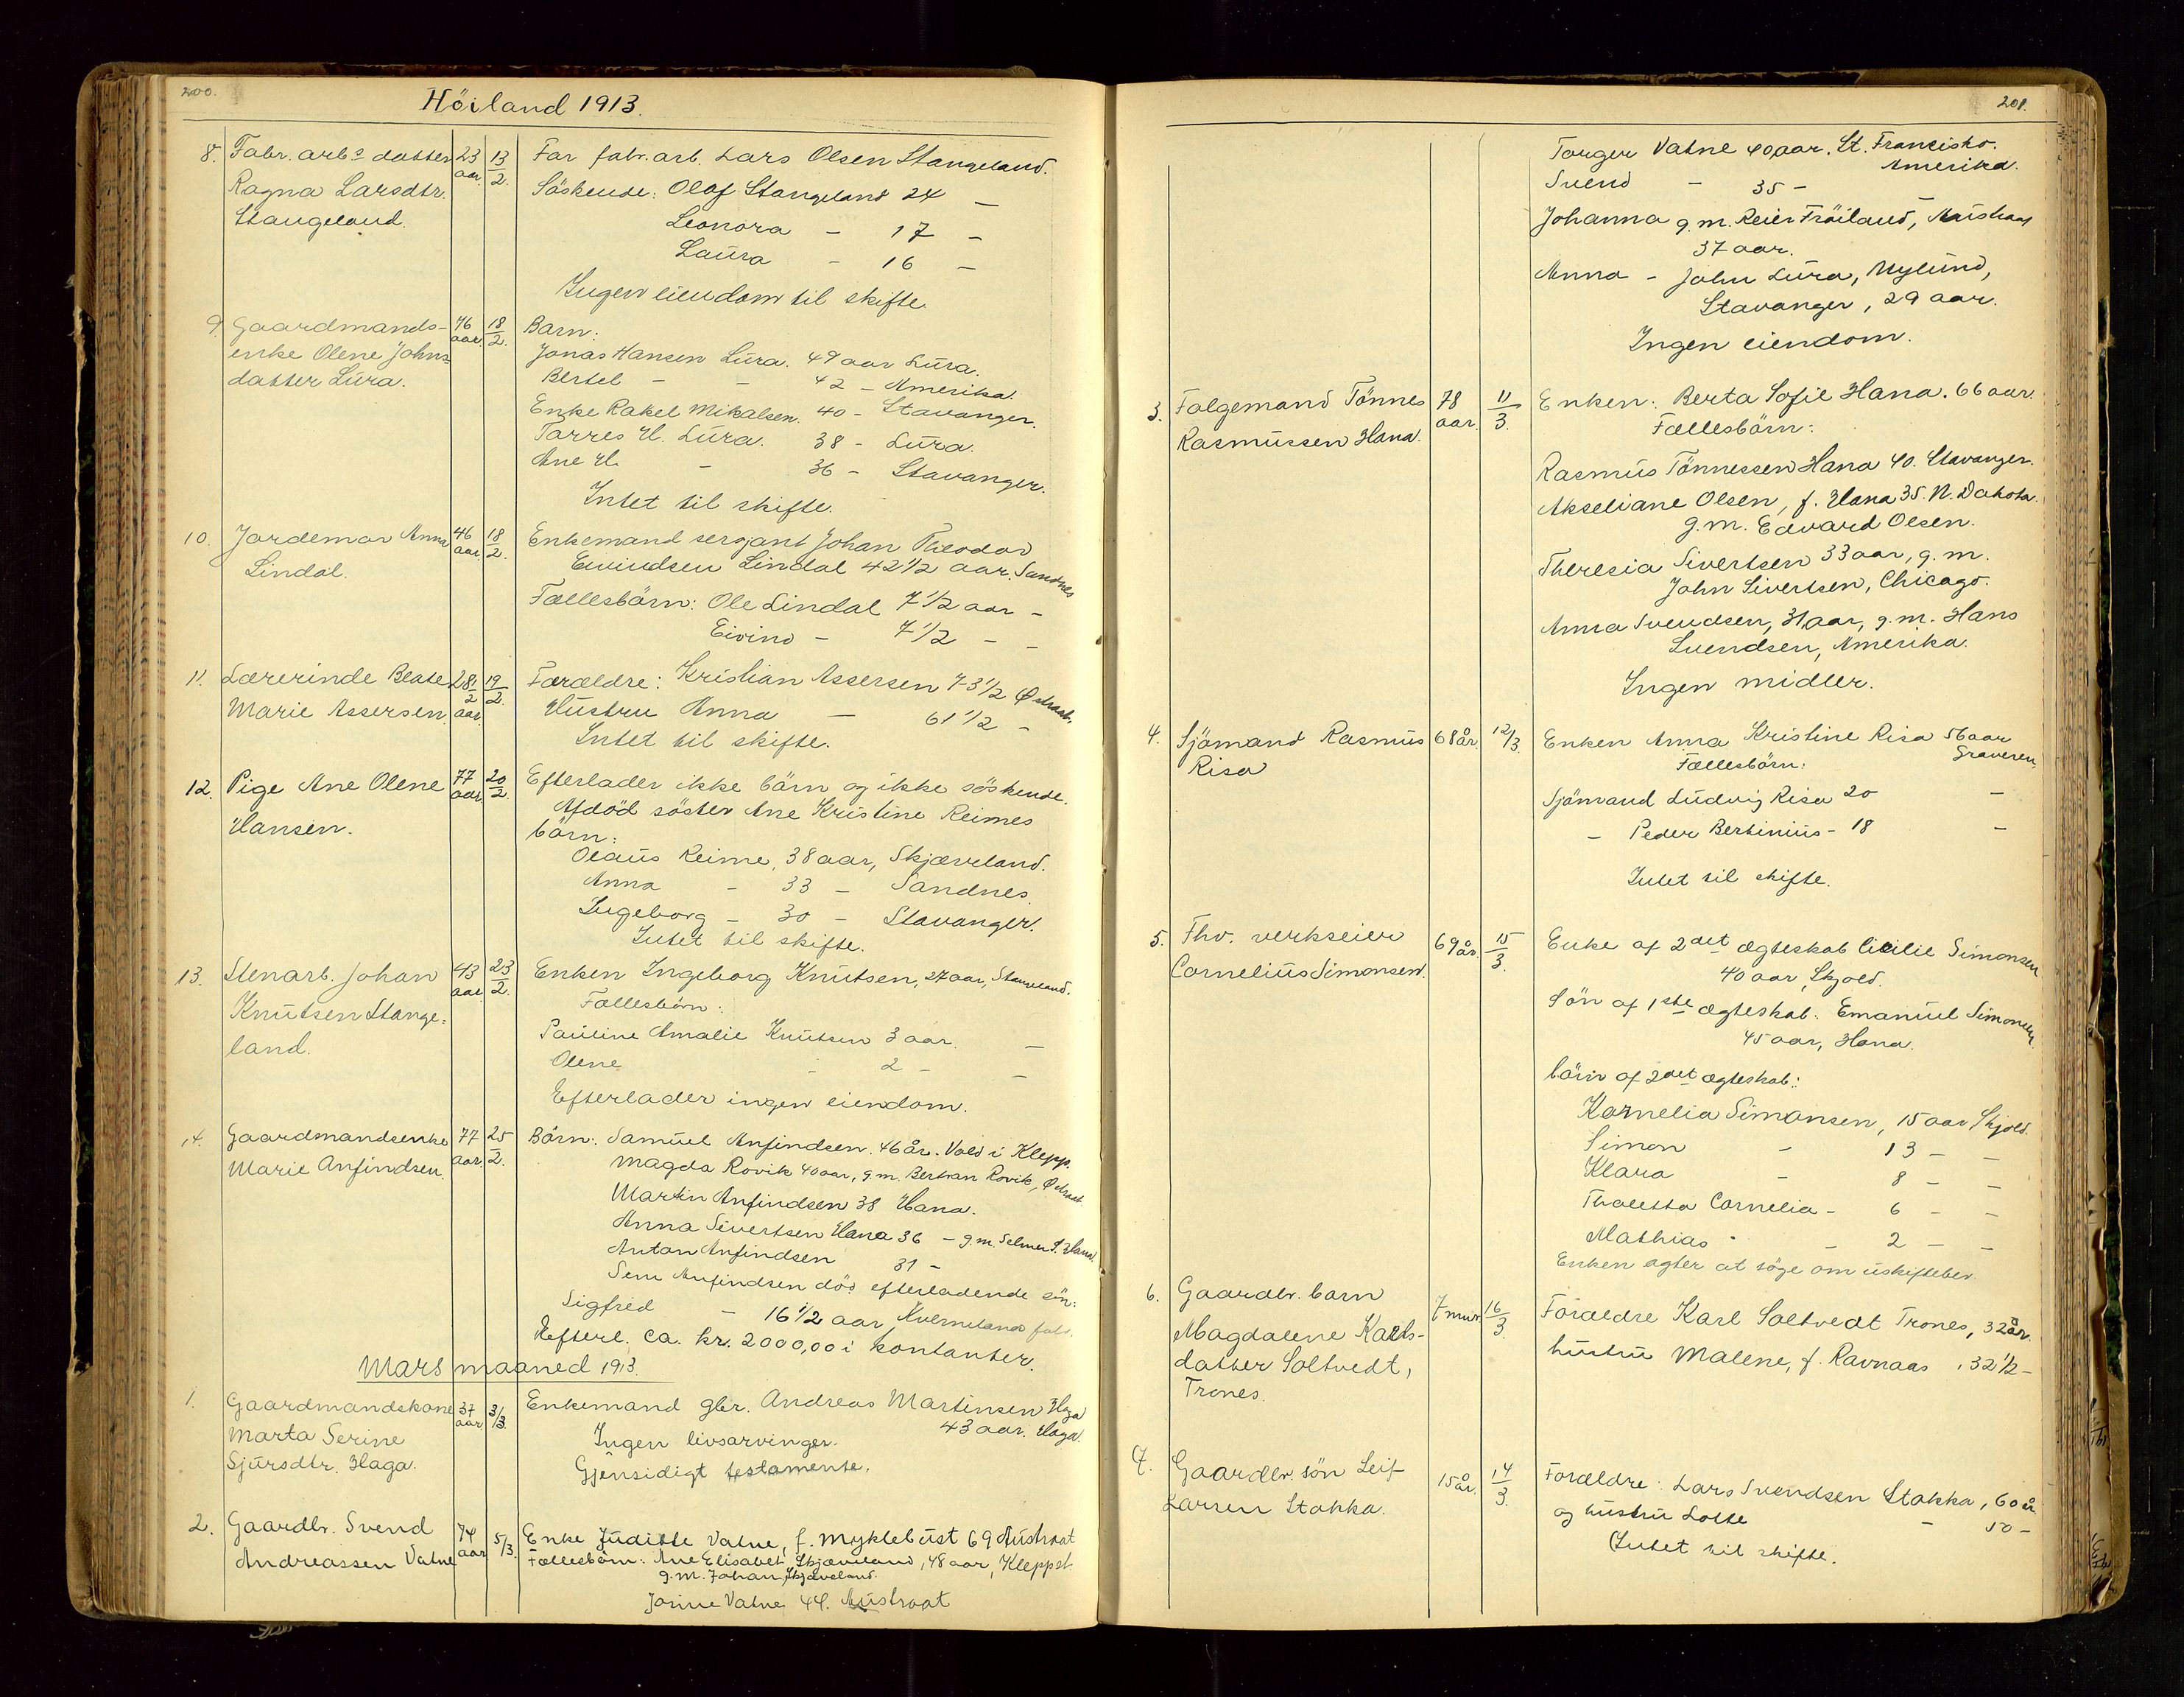 200.
Höiland 1913.
8. Fabr. arb.s datter 23 aar. 13/2. Far fabr. arb. Lars Olsen Stangeland.
Ragna Larsdtr. Söskende: Olaf Stangeland 24 —
Stangeland. Leonora - 17 -
Laura - 16 -
Ingen eiendom til skifte.
9. Gaardmands- 76 aar. 18/2. Barn:
enke Olene Johns= Jonas Hansen Lura. 49 aar Lura.
datter Lura. Bertel - - 42 - Amerika.
Enke Rakel Mikalsen. 40 - Stavanger.
Tarres H. Lura. 38 - Lura.
Ane H. - 36 - Stavanger.
Intet til skifte.
10. Jordemor Anna 46 aar. 18/2. Enkemand sersjant Johan Theodor
Lindal. Eivindsen Lindal 42 1/2 aar, Sandnes
Fællesbörn: Ole Lindal 7 1/2 aar -
Eivind - 7 1/2 - -
11. Lærerinde Beate 28 1/2 aar. 19/2. Forældre: Kristian Assersen 73 1/2 Østraat.
Marie Assersen. Hustru Anna — 61 1/2 -
Intet til skifte.
12. Pige Ane Olene 77 aar. 20/2. Efterlader ikke börn og ikke söskende.
Hansen. Afdöd söster Ane Kristine Reimes
börn:
Olaus Reime, 38 aar, Skjæveland.
Anna - 33 - Sandnes.
Ingeborg - 30 - Stavanger.
Intet til skifte.
13. Stenarb. Johan 43 aar. 23/2. Enken Ingeborg Knutsen, 27 aar, Stangeland.
Knutsen Stange= Fællesbörn:
land. Pauline Amalie Knutsen 3 aar. —
Olene - 2 - —
Efterlader ingen eiendom.
14. Gaardmandsenke 77 aar. 25/2. Börn: Samuel Anfindsen. 46 år. Vold i Klepp.
Marie Anfindsen. Magda Rovik 40 aar, g.m. Bertran Rovik, Østraat.
Martin Anfindsen 38 Hana.
Anna Sivertsen Hana 36 - g.m. Selmer S. Hana.
Anton Anfindsen 31 -
Sem Anfindsen död efterladende sön:
Sigfred - 16 1/2 aar, Kverneland fabr.
Efterl. ca. kr. 2000,00 i kontanter.
Mars maaned 1913.
1. Gaardmandskone 37 aar. 3/3. Enkemand gbr. Andreas Martinsen Haga
Marta Serine 43 aar. Haga.
Sjursdtr. Haga. Ingen livsarvinger.
Gjensidigt testamente.
2. Gaardbr. Svend 74 aar 5/3. Enke Juditte Vatne, f. Myklebust 69 Austraat
Andreassen Vatne Fællesbörn: Ane Elisabet Skjæveland, 48 aar, Kleppst.
g.m. Johan Skjæveland.
Jorine Vatne 44. Austraat
201.
Torger Vatne 40 aar. St. Francisko.
Amerika.
Svend - 35 - —
Johanna g.m. Reier Fröiland, Austraat
37 aar.
Anna - John Lura, Nylund,
Stavanger, 29 aar.
Ingen eiendom.
3. Folgemand Tönnes 78 aar. 11/3. Enken: Berta Sofie Hana. 66 aar.
Rasmussen Hana. Fællesbörn:
Rasmus Tönnessen Hana 40. Stavanger.
Akseliane Olsen, f. Hana 35. N. Dakota.
g.m. Edvard Olsen.
Theresia Sivertsen 33 aar, g.m.
John Sivertsen, Chicago.
Anna Svendsen, 31 aar, g.m. Hans
Svendsen, Amerika.
Ingen midler.
4. Sjömand Rasmus 68 år. 12/3. Enken Anna Kristine Risa 56 aar
Risa Graveren.
Fællesbörn:
Sjömand Ludvig Risa 20 —
- Peder Bertinius - 18 —
Intet til skifte.
5. Fhv. verkseier 69 år. 15/3. Enke af 2det ægteskab Cicilie Simonsen
Cornelius Simonsen. 40 aar, Skjold.
Sön af 1ste ægteskab. Emanuel Simonsen
45 aar, Hana.
börn af 2det ægteskab:
Kornelia Simonsen, 15 aar Skjold.
Simon - 13 - -
Klara - 8 - -
Thaletta Cornelia - 6 - -
Mathias - 2 - -
Enken agter at söge om uskiftebev.
6. Gaardbr. barn 7 mdr. 16/3. Forældre Karl Soltvedt Trones, 32 år.
Magdalene Karls- hustru Malene, f. Ravnaas, 32 1/2 -
datter Soltvedt,
Trones.
7. Gaardbr. sön Leif 15 år. 14/3. Forældre: Lars Svendsen Stokka, 60 år
Larsen Stokka. og hustru Lotte - 50 -
Intet til skifte.